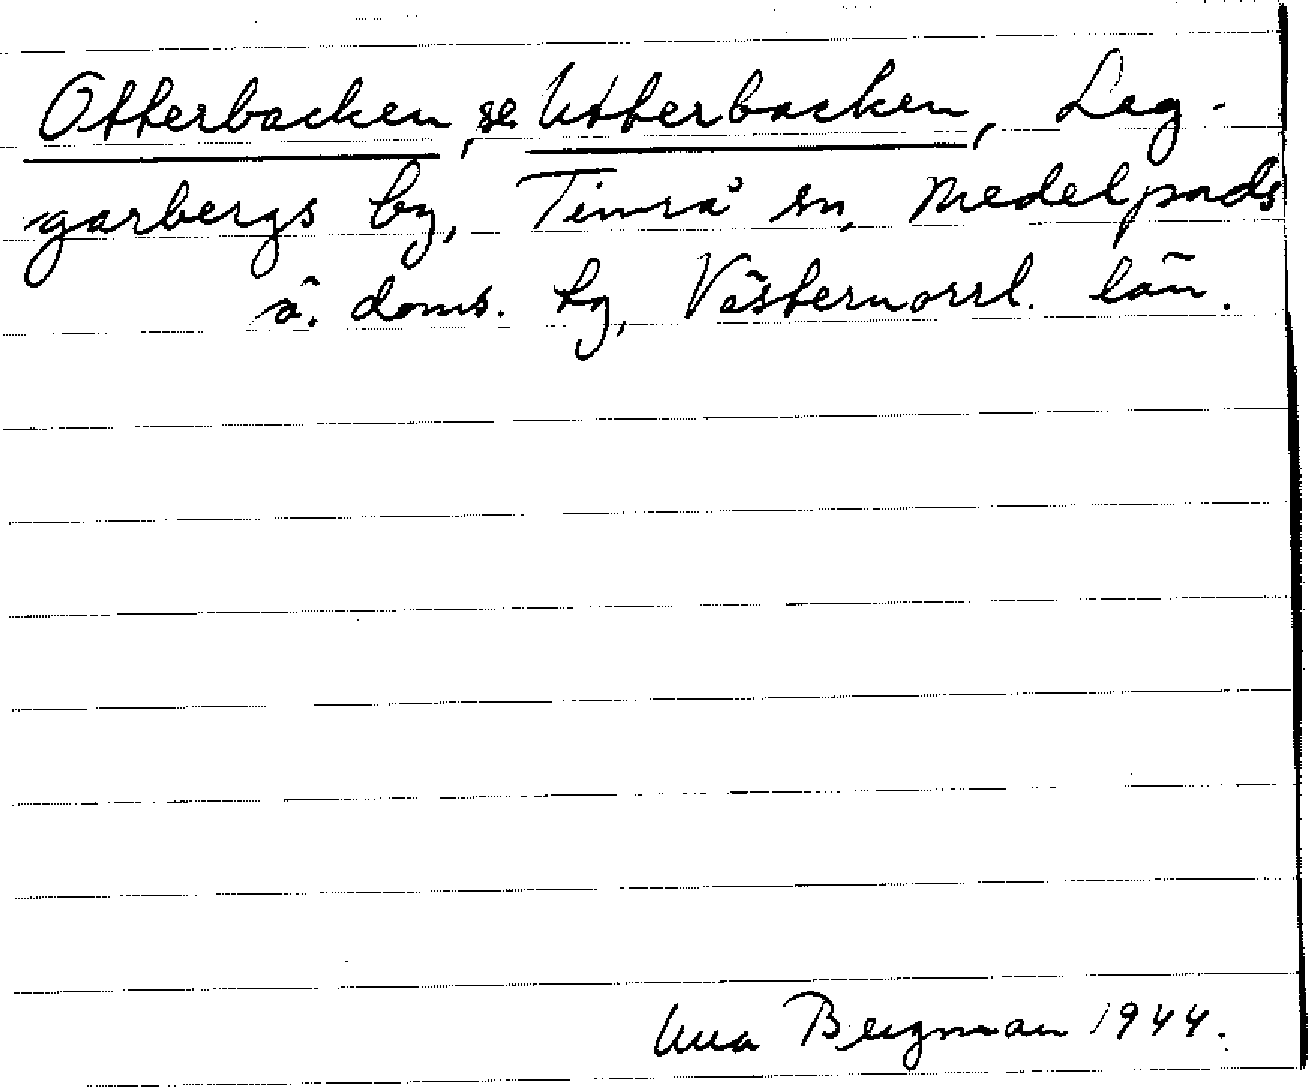 Otterbacken, se Utterbacken, Lag-
garbergs by, Timrå sn, Medelpads
ö. doms. tg, Västernorrl. län.
Una Bergman 1944.